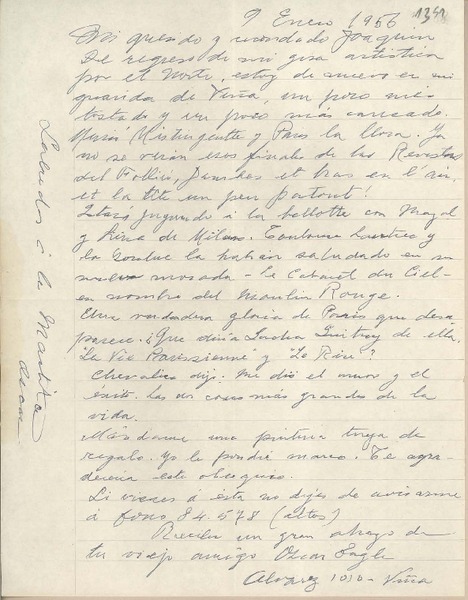 9 Enero 1956
Mi querido y recordado Joaquín
De regreso de mi gira artística
por el Norte, estoy de nuevo en mi
guarida de Viña, un poco más
tostado y un poco más cansado.
Murió Mistinguette y París la llora. Ya
no se verán esos finales de las Revistas
del Follies, jambes et bras en l'air,
et la tête un peu partout!
Estará jugando á la bellotte con Mayol
y de Milan. Toulouse Lautrec y
la Goulue la habrán saludado en su
nueva morada - Le Cabaret du Ciel -
en nombre del Moulin Rouge.
Otra verdadera gloria de París que desa
parece. ¿Que dirá Sacha Guitry de ella,
"La Vie Parisienne" y "Le Rire"?
Chevalier dijo: Me dió el amor y el
éxito. las dos cosas más grandes de la
vida.
Mándame una pintura tuya de
regalo. Yo le pondré marco. Te agra-
decería este obsequio.
Si vienes á esta no dejes de avisarme
á fono 84.578 (altos)
Recibe un gran abrazo de
tu viejo amigo Oscar
Alvarez 1010 - Viña
Saludos á la